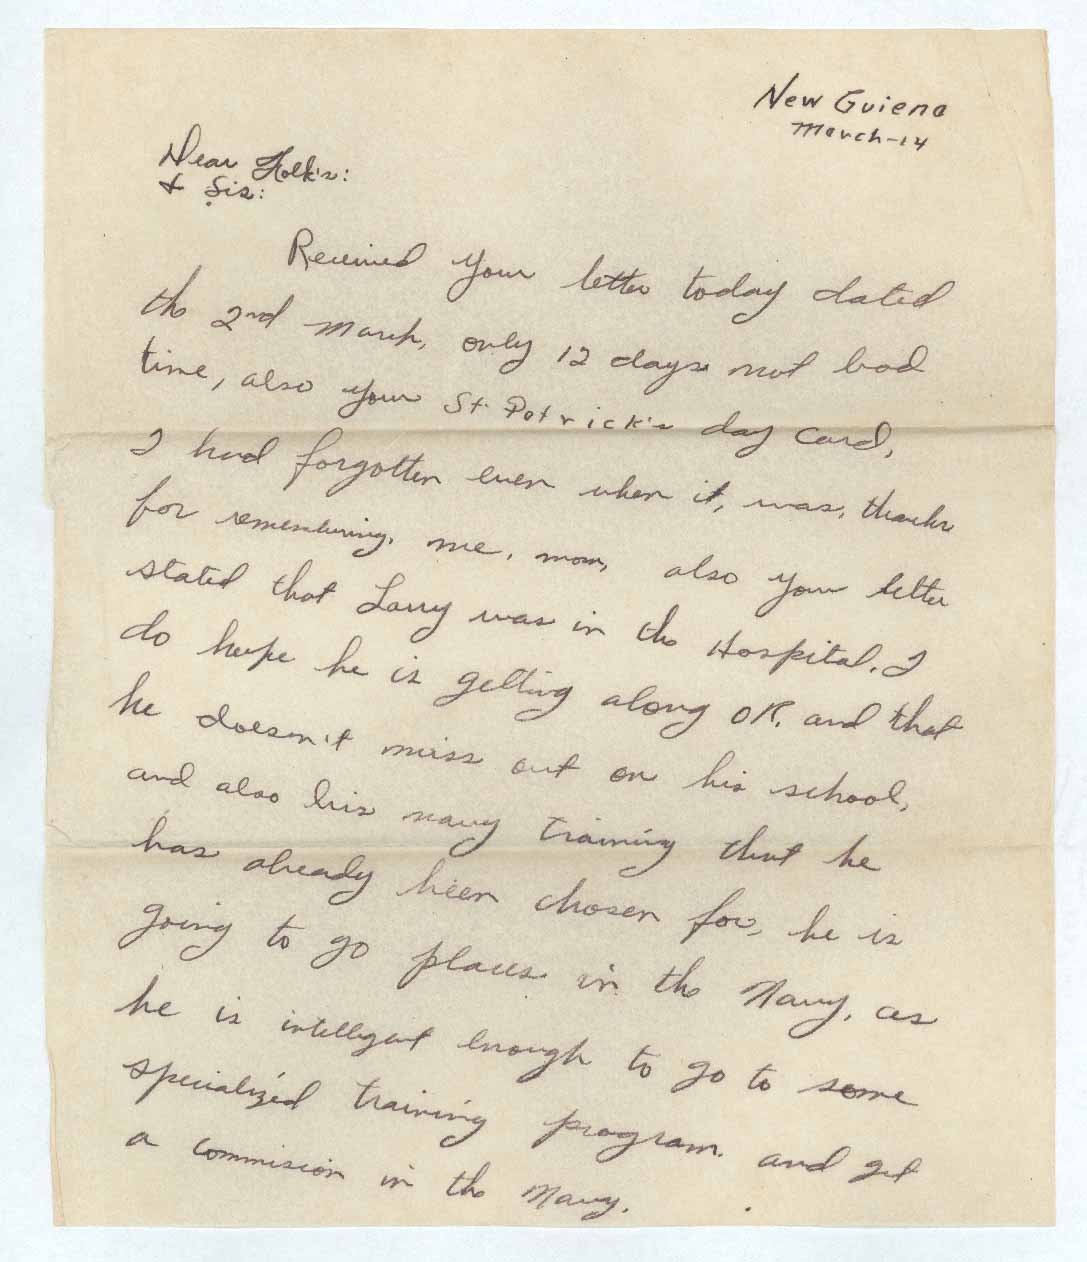 New Guiena
March-14
Dear Folk's:
& Sis:
Received your letter today dated
the 2nd March, only 12 days not bad
time, also your St. Patrick's day card,
I had forgotten even when it, was, thanks
for remembering, me, mom, also your letter
stated that Larry was in the Hospital. I
do hope he is getting along OK. and that
he doesn't miss out on his school,
and also his navy training that he
has already been chosen for, he is
going to go places in the Navy, as
he is intelligent enough to go to some
specialized training program. and get
a commision in the Navy.